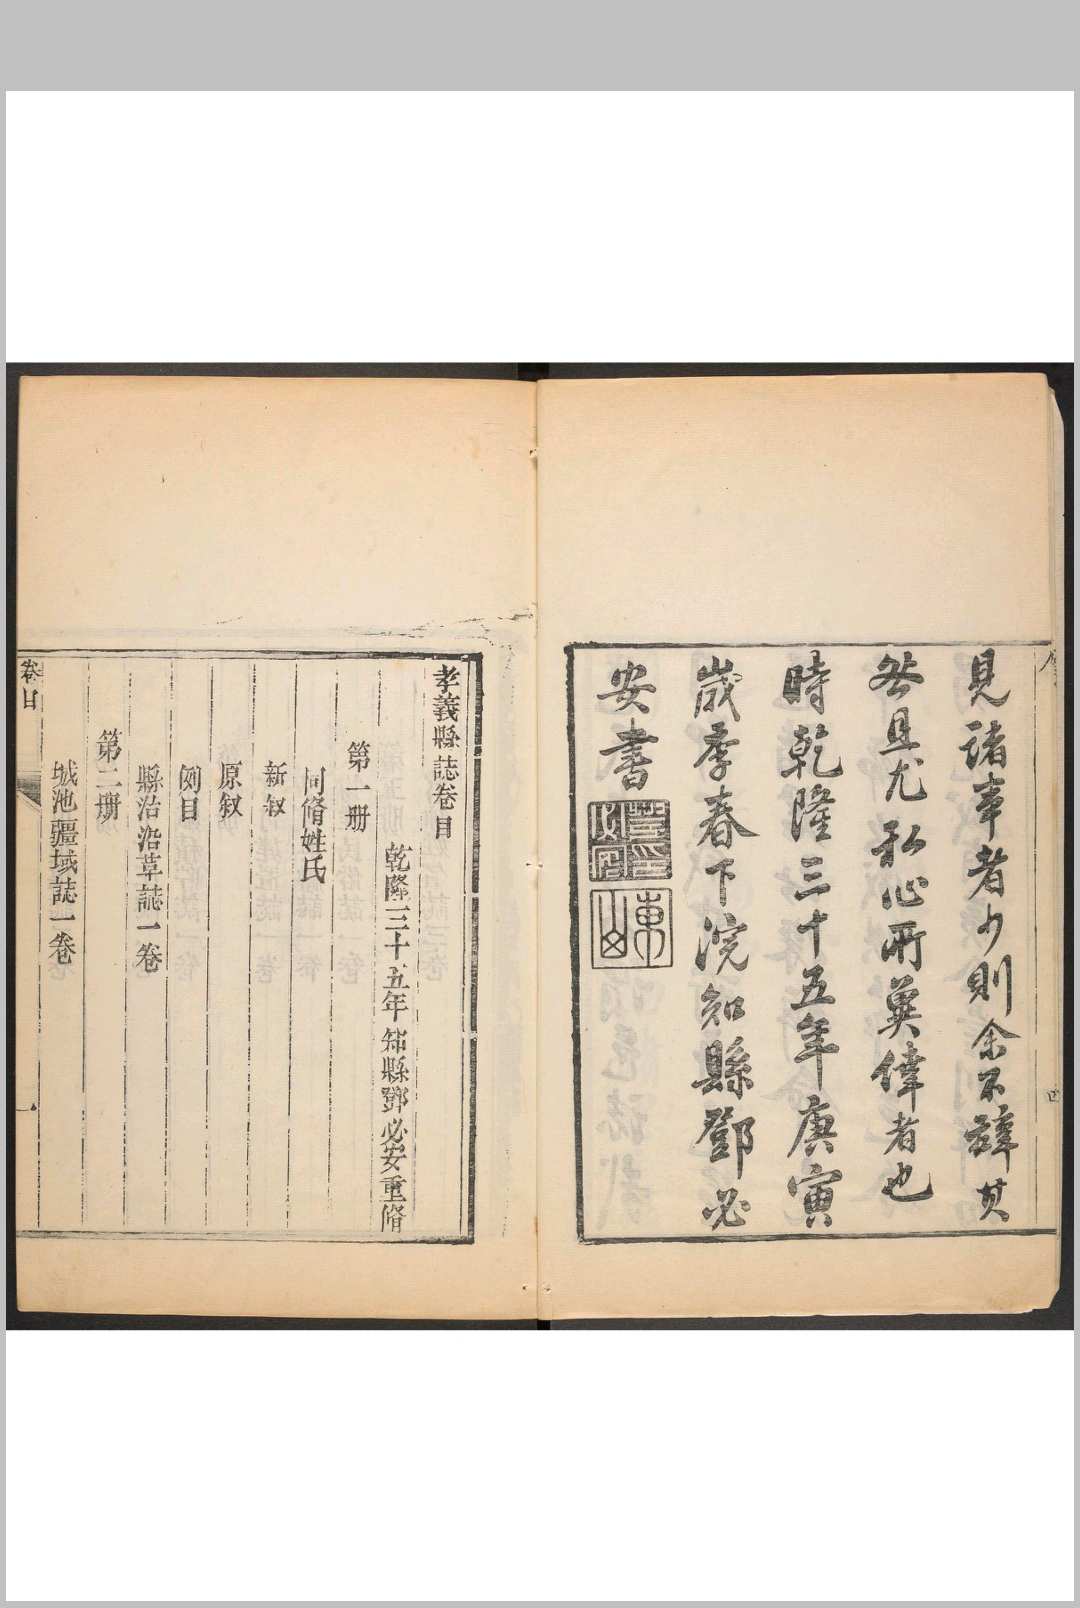 見諸事者少則余不辭其
咎且尤私心所冀倖者也
時乾隆三十五年庚寅
歲季春下浣知縣鄧必
安書
東山
孝義縣誌卷目
乾隆三十五年知縣鄧必安重脩
第一册
同脩姓氏
新叙
原叙
例目
縣治沿革誌一卷
第二册
城池疆域誌一卷
卷目
一